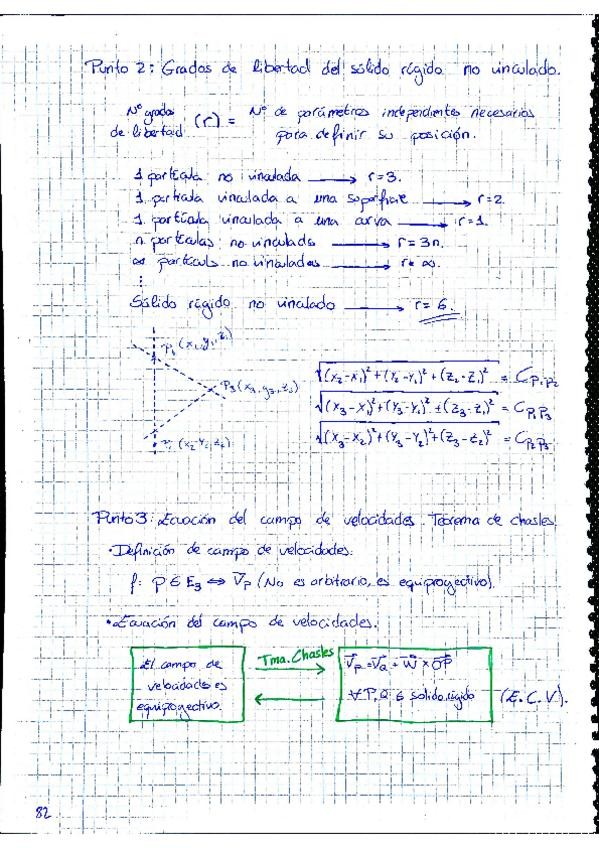 Punto 2: Grados de libertad del sólido rígido no vinculado.
Nº grados de libertad (r) = Nº de parámetros independientes necesarios para definir su posición.
1 partícula no vinculada → r=3.
1 partícula vinculada a una superficie → r=2
1 partícula vinculada a una curva → r=1.
n partículas no vinculada → r=3n.
∞ partículs no vinculadas → r=∞.
⋮
Sólido rígido no vinculado → r=6.
P₁(x₁,y₁,z₁)
P₃(x₃,y₃,z₃)
(x₂-Y₂,z₂)
√(x₂-x₁)²+(Y₂-Y₁)²+(z₂-z₁)² = C_P₁P₂
√(x₃-x₁)²+(Y₃-Y₁)²+(z₃-z₁)² = C_P₁P₃
√(x₃-x₂)²+(Y₃-Y₂)²+(z₃-z₂)² = C_P₂P₃
Punto 3: Ecuación del campo de velocidades. Teorema de chasles
• Definición de campo de velocidades.
f: p∈E₃ ⇔ V̄p (No es arbitrario, es equiproyectivo).
• Ecuación del campo de velocidades.
El campo de velocidades es equiproyectivo.
Tma. Chasles
V̄p = V̄Q + W̄ × Q̄P
∀P,Q ∈ solido rígido
(E.C.V).
82